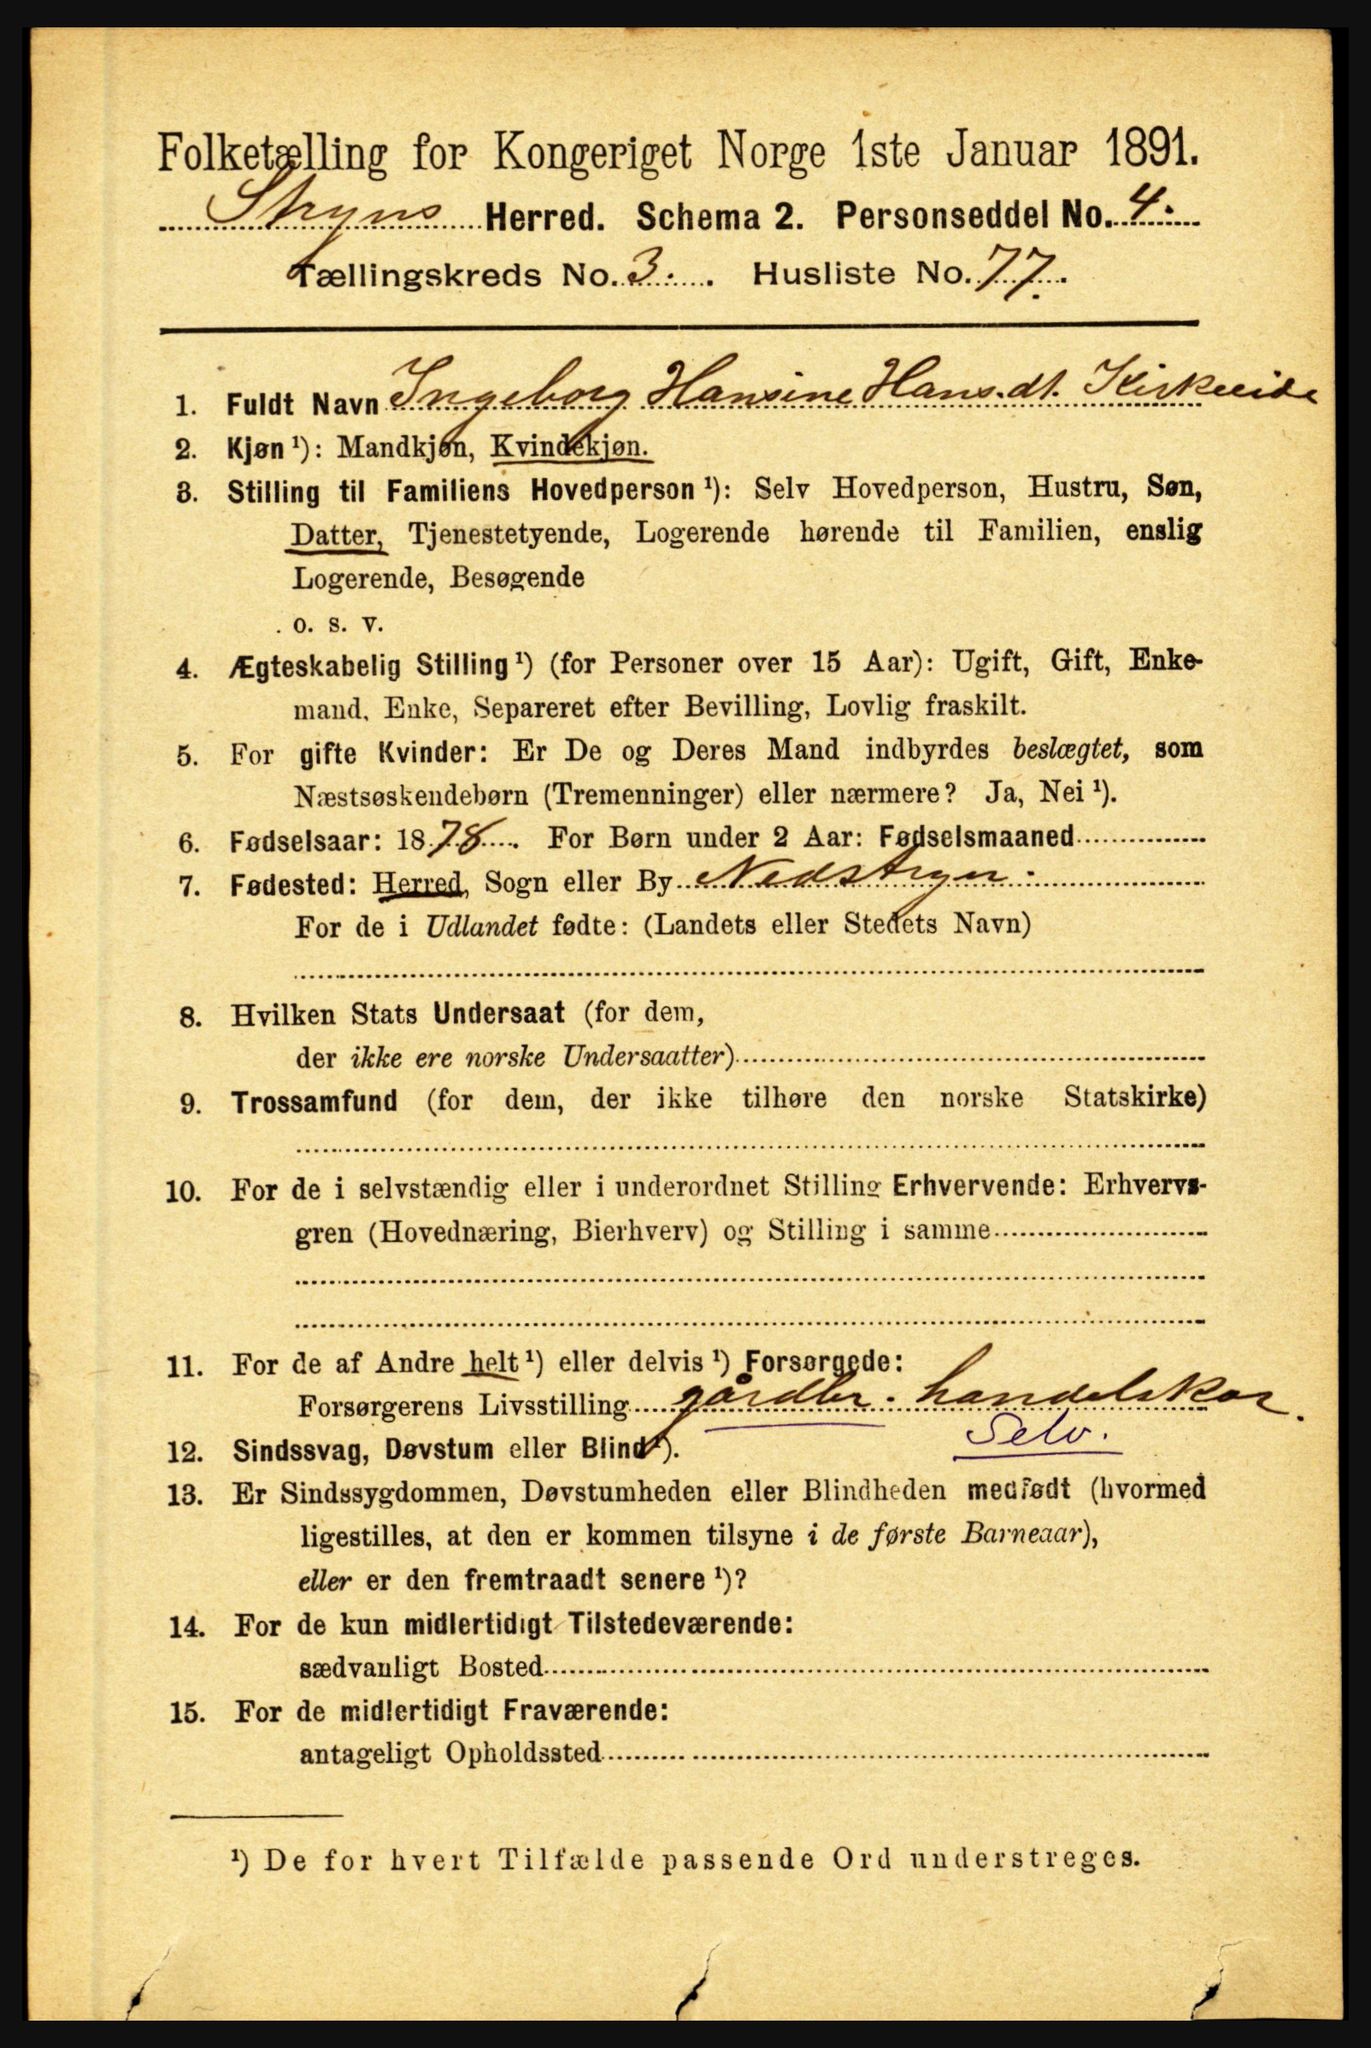 Folketælling for Kongeriget Norge 1ste Januar 1891.
Stryns Herred. Schema 2. Personseddel No. 4.
Tællingskreds No. 3. Husliste No. 77.
1. Fuldt Navn Ingeborg Hansine Hans.dt. Kirkeeide
2. Kjøn ¹): Mandkjøn, Kvindekjøn.
3. Stilling til Familiens Hovedperson ¹): Selv Hovedperson, Hustru, Søn,
Datter, Tjenestetyende, Logerende hørende til Familien, enslig
Logerende, Besøgende
o. s. v.
4. Ægteskabelig Stilling ¹) (for Personer over 15 Aar): Ugift, Gift, Enke-
mand, Enke, Separeret efter Bevilling, Lovlig fraskilt.
5. For gifte Kvinder: Er De og Deres Mand indbyrdes beslægtet, som
Næstsøskendebørn (Tremenninger) eller nærmere? Ja, Nei ¹).
6. Fødselsaar: 1878. For Børn under 2 Aar: Fødselsmaaned
7. Fødested: Herred, Sogn eller By Nedstryn.
For de i Udlandet fødte: (Landets eller Stedets Navn)
8. Hvilken Stats Undersaat (for dem,
der ikke ere norske Undersaatter)
9. Trossamfund (for dem, der ikke tilhøre den norske Statskirke)
10. For de i selvstændig eller i underordnet Stilling Erhvervende: Erhvervs-
gren (Hovednæring, Bierhverv) og Stilling i samme
11. For de af Andre helt ¹) eller delvis ¹) Forsørgede:
Forsørgerens Livsstilling gårdbr. handelskar.
Selv.
12. Sindssvag, Døvstum eller Blind ¹).
13. Er Sindssygdommen, Døvstumheden eller Blindheden medfødt (hvormed
ligestilles, at den er kommen tilsyne i de første Barneaar),
eller er den fremtraadt senere ¹)?
14. For de kun midlertidigt Tilstedeværende:
sædvanligt Bosted
15. For de midlertidigt Fraværende:
antageligt Opholdssted
¹) De for hvert Tilfælde passende Ord understreges.